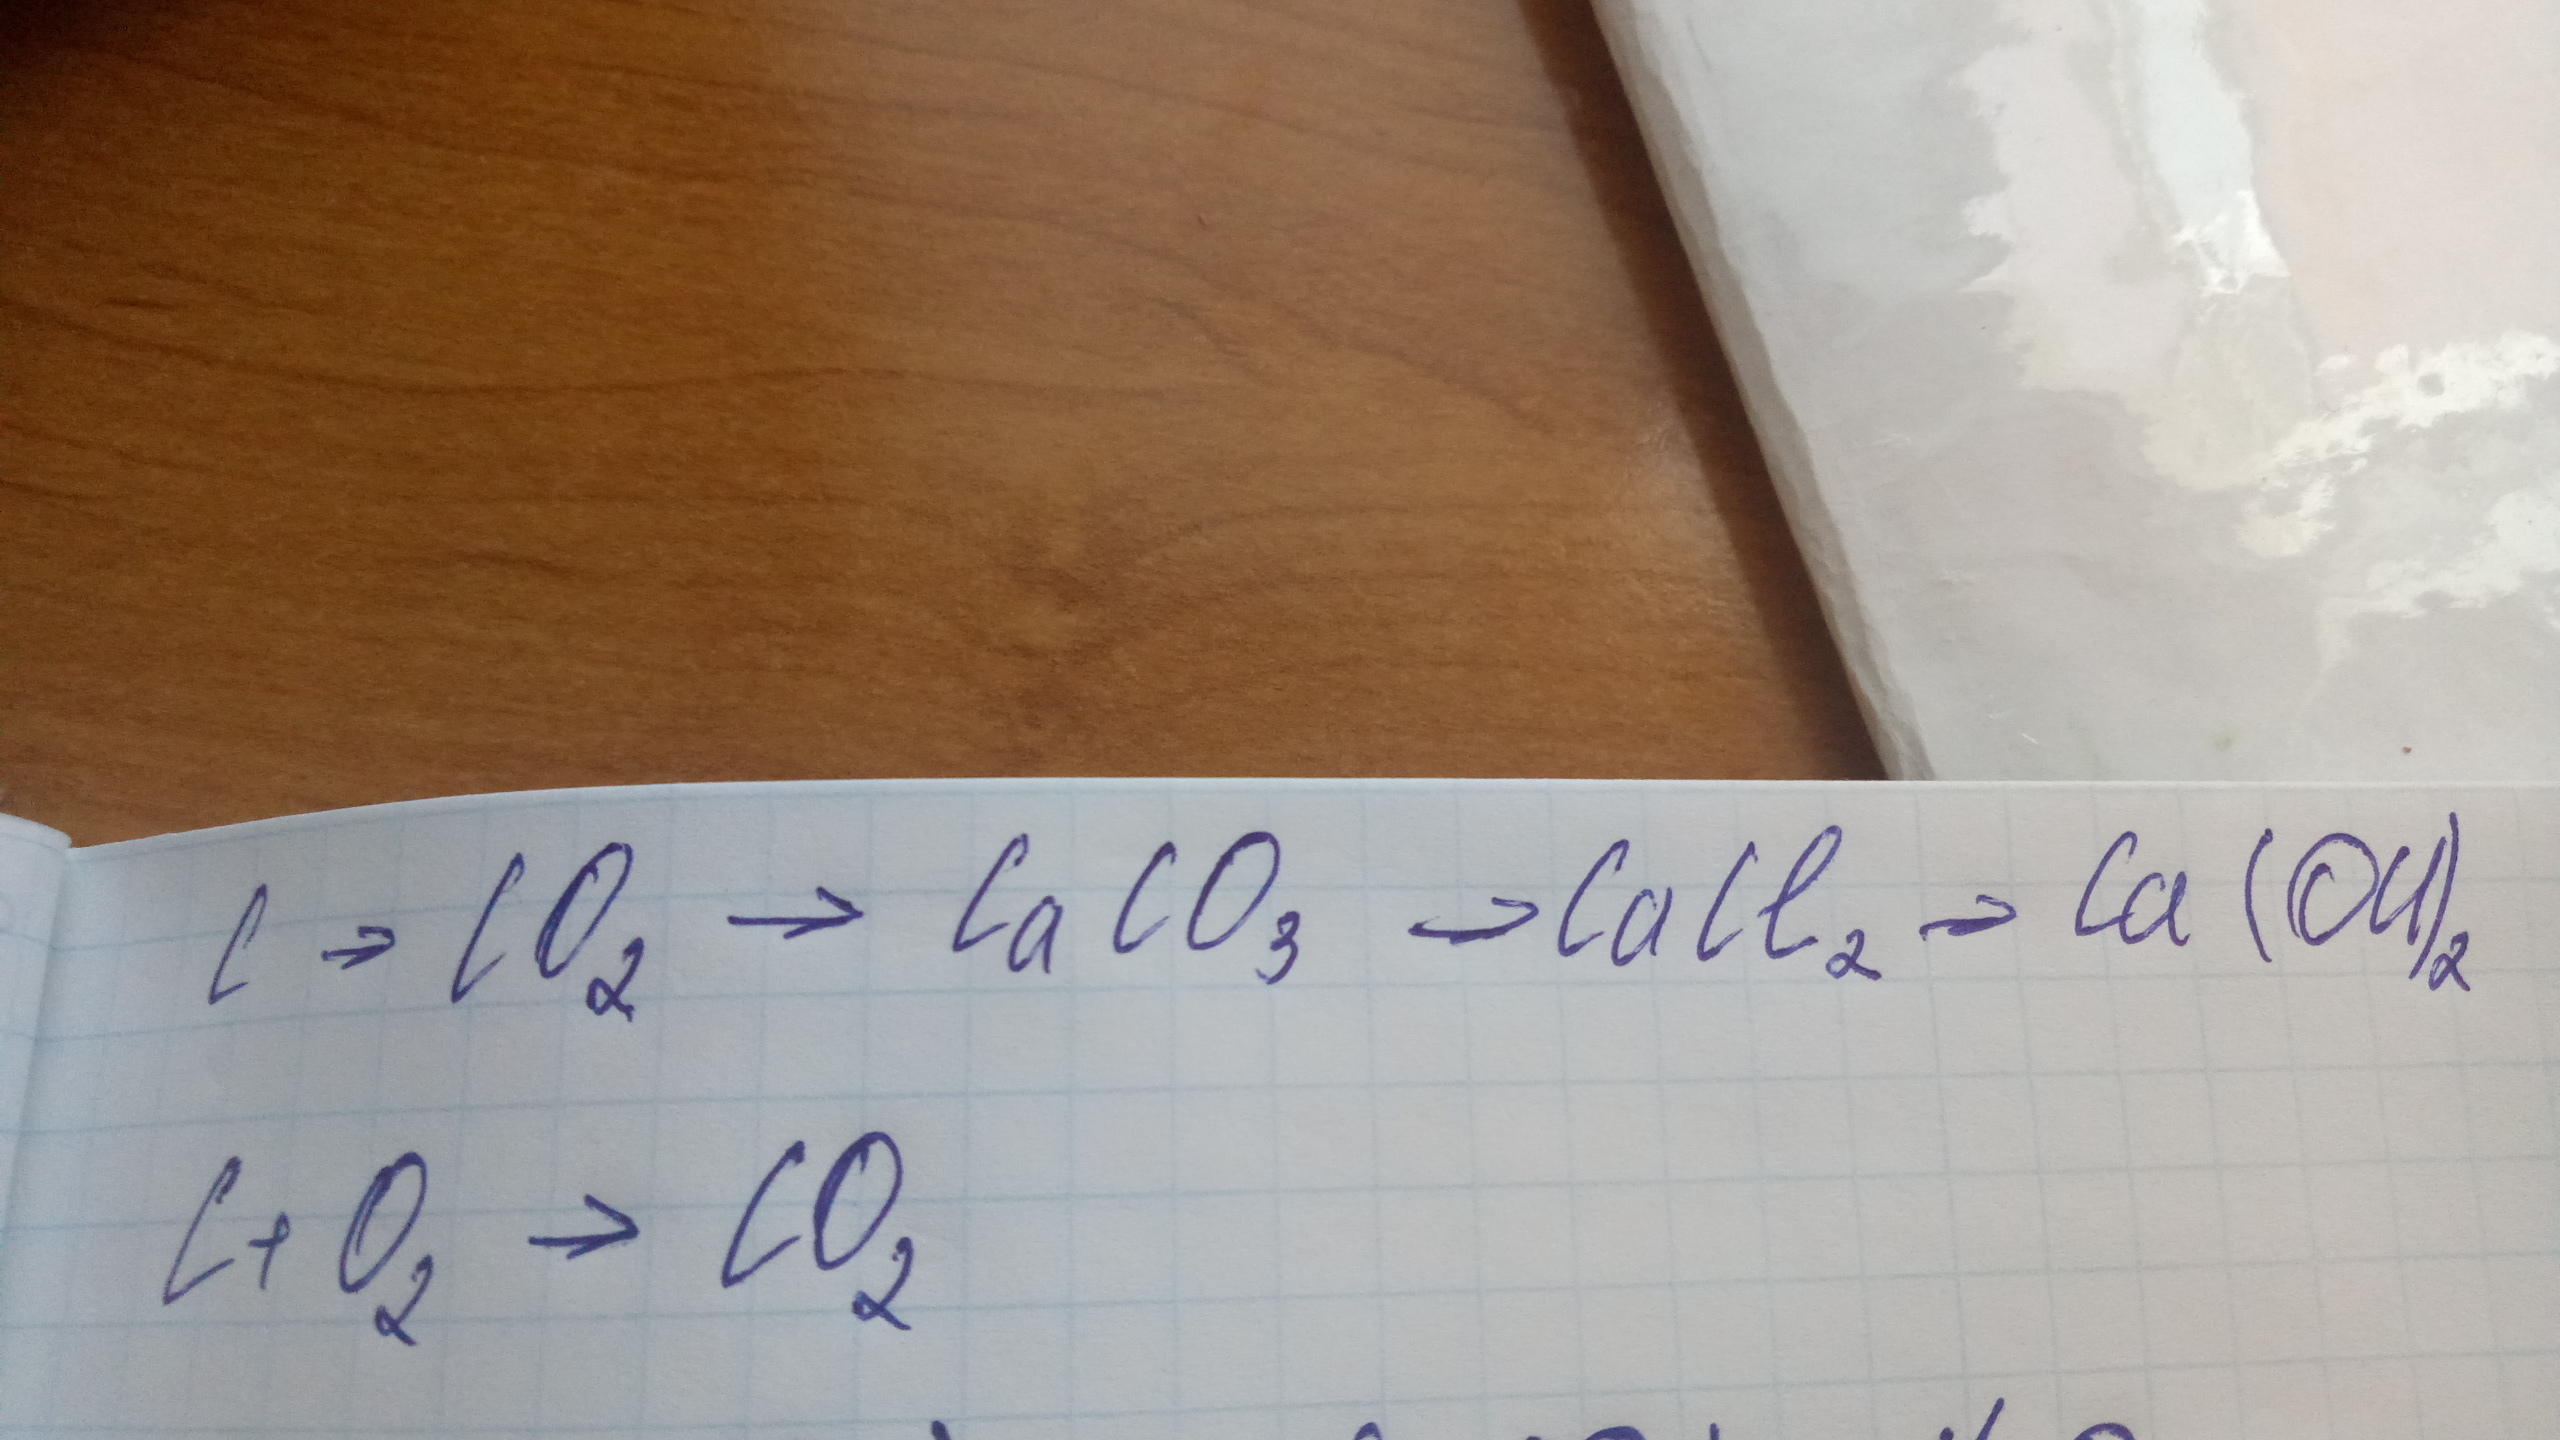 C → CO₂ → CaCO₃ → CaCl₂ → Ca(OH)₂
C + O₂ → CO₂